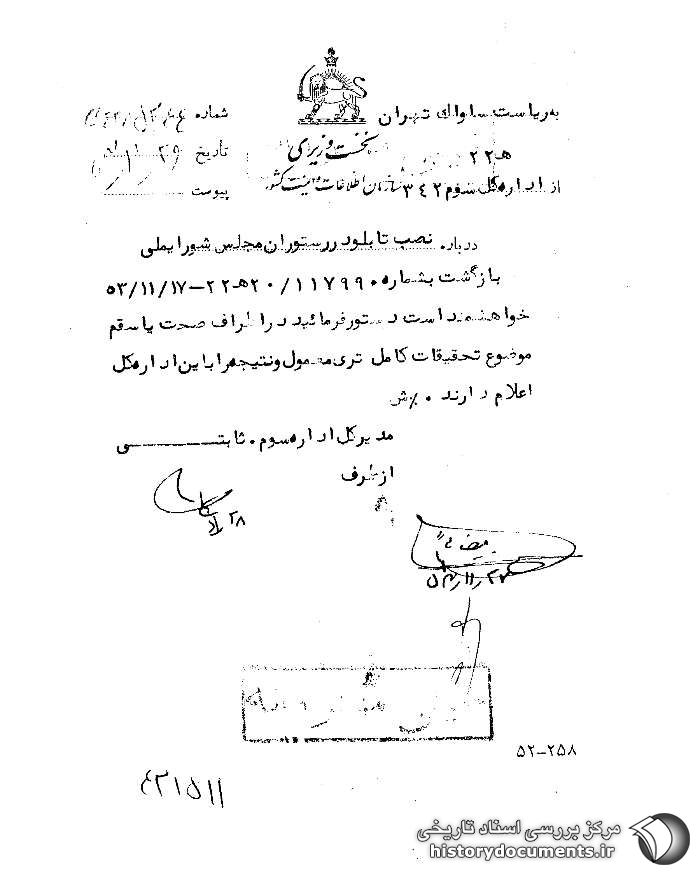 به ریاست ساواک تهران
۲۲ هـ
از اداره کل سوم ۳۴۲
نخست وزیری
سازمان اطلاعات و امنیت کشور
شماره
تاریخ
پیوست
درباره نصب تابلو در رستوران مجلس شورایملی
بازگشت بشماره ۱۱۷۹۹۰/۲۰هـ۲۲-۵۳/۱۱/۱۷
خواهشمند است دستور فرمائید در اطراف صحت یا سقم
موضوع تحقیقات کامل تری معمول و نتیجه را باین اداره کل
اعلام دارند ۰٪ش
مدیر کل اداره سوم. ثابتی
از طرف
۵۲-۲۵۸
مرکز بررسی اسناد تاریخی
historydocuments.ir